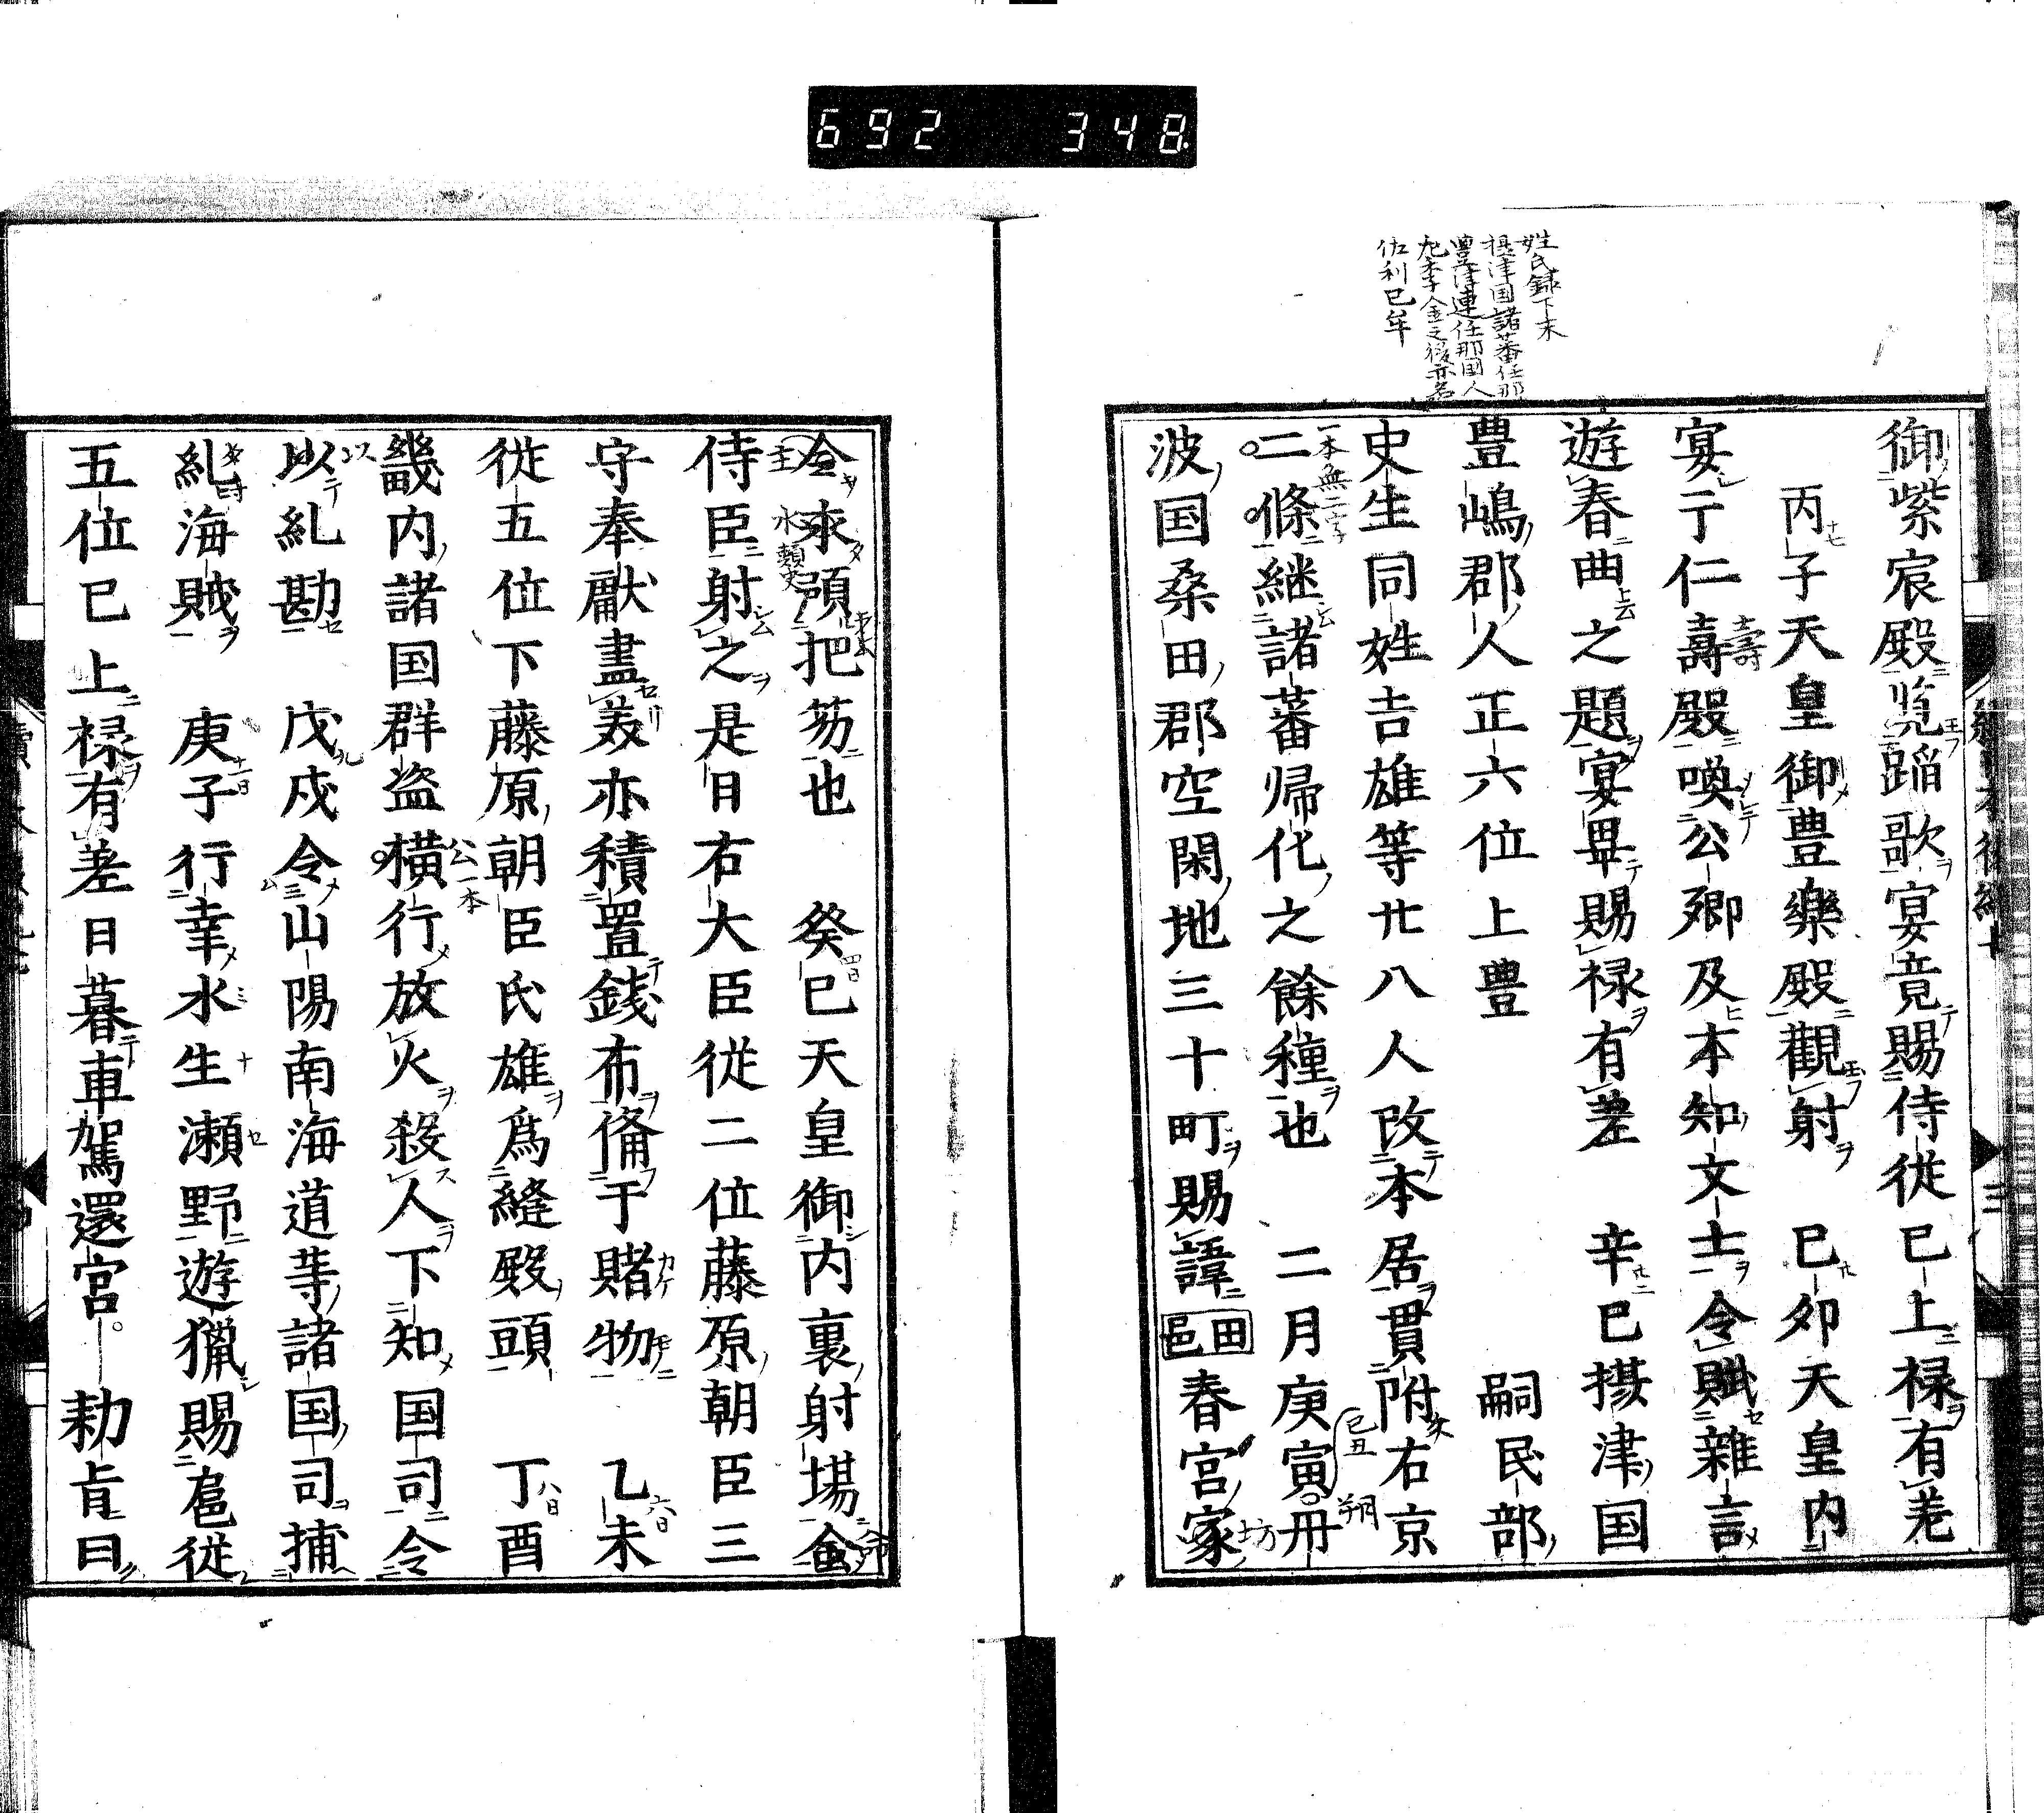 692 348
姓氏録下末
摂津国諸蕃任那
豊津連任那国人
佐利已牟
御紫宸殿覧蹈歌宴竟賜侍従已上禄有差
丙子天皇御豊樂殿觀射 已卯天皇内
宴于仁壽殿喚公卿及本知文士令賦雜言
遊春曲之題宴畢賜禄有差 辛巳摂津国
豊嶋郡人正六位上豊 嗣民部
史生同姓吉雄等廿八人改本居貫附右京
二條継諸蕃帰化之餘種也 二月庚寅丹
波国桑田郡空閑地三十町賜諱田邑春宮家
一本無二字
壽
已丑
朔
坊
令來頭把笏也 癸巳天皇御内裏射場
侍臣射之是日右大臣従二位藤原朝臣三
守奉獻盡美亦積置銭布備于賭物 乙未
従五位下藤原朝臣氏雄爲縫殿頭 丁酉
畿内諸国群盗横行放火殺人下知国司令
以糺勘 戊戌令山陽南海道等諸国司捕
糺海賊 庚子行幸水生瀬野遊猟賜扈従
五位已上禄有差日暮車駕還宮 勅旨曰
主
水類史
公一本
四日
六日
八日
十一日